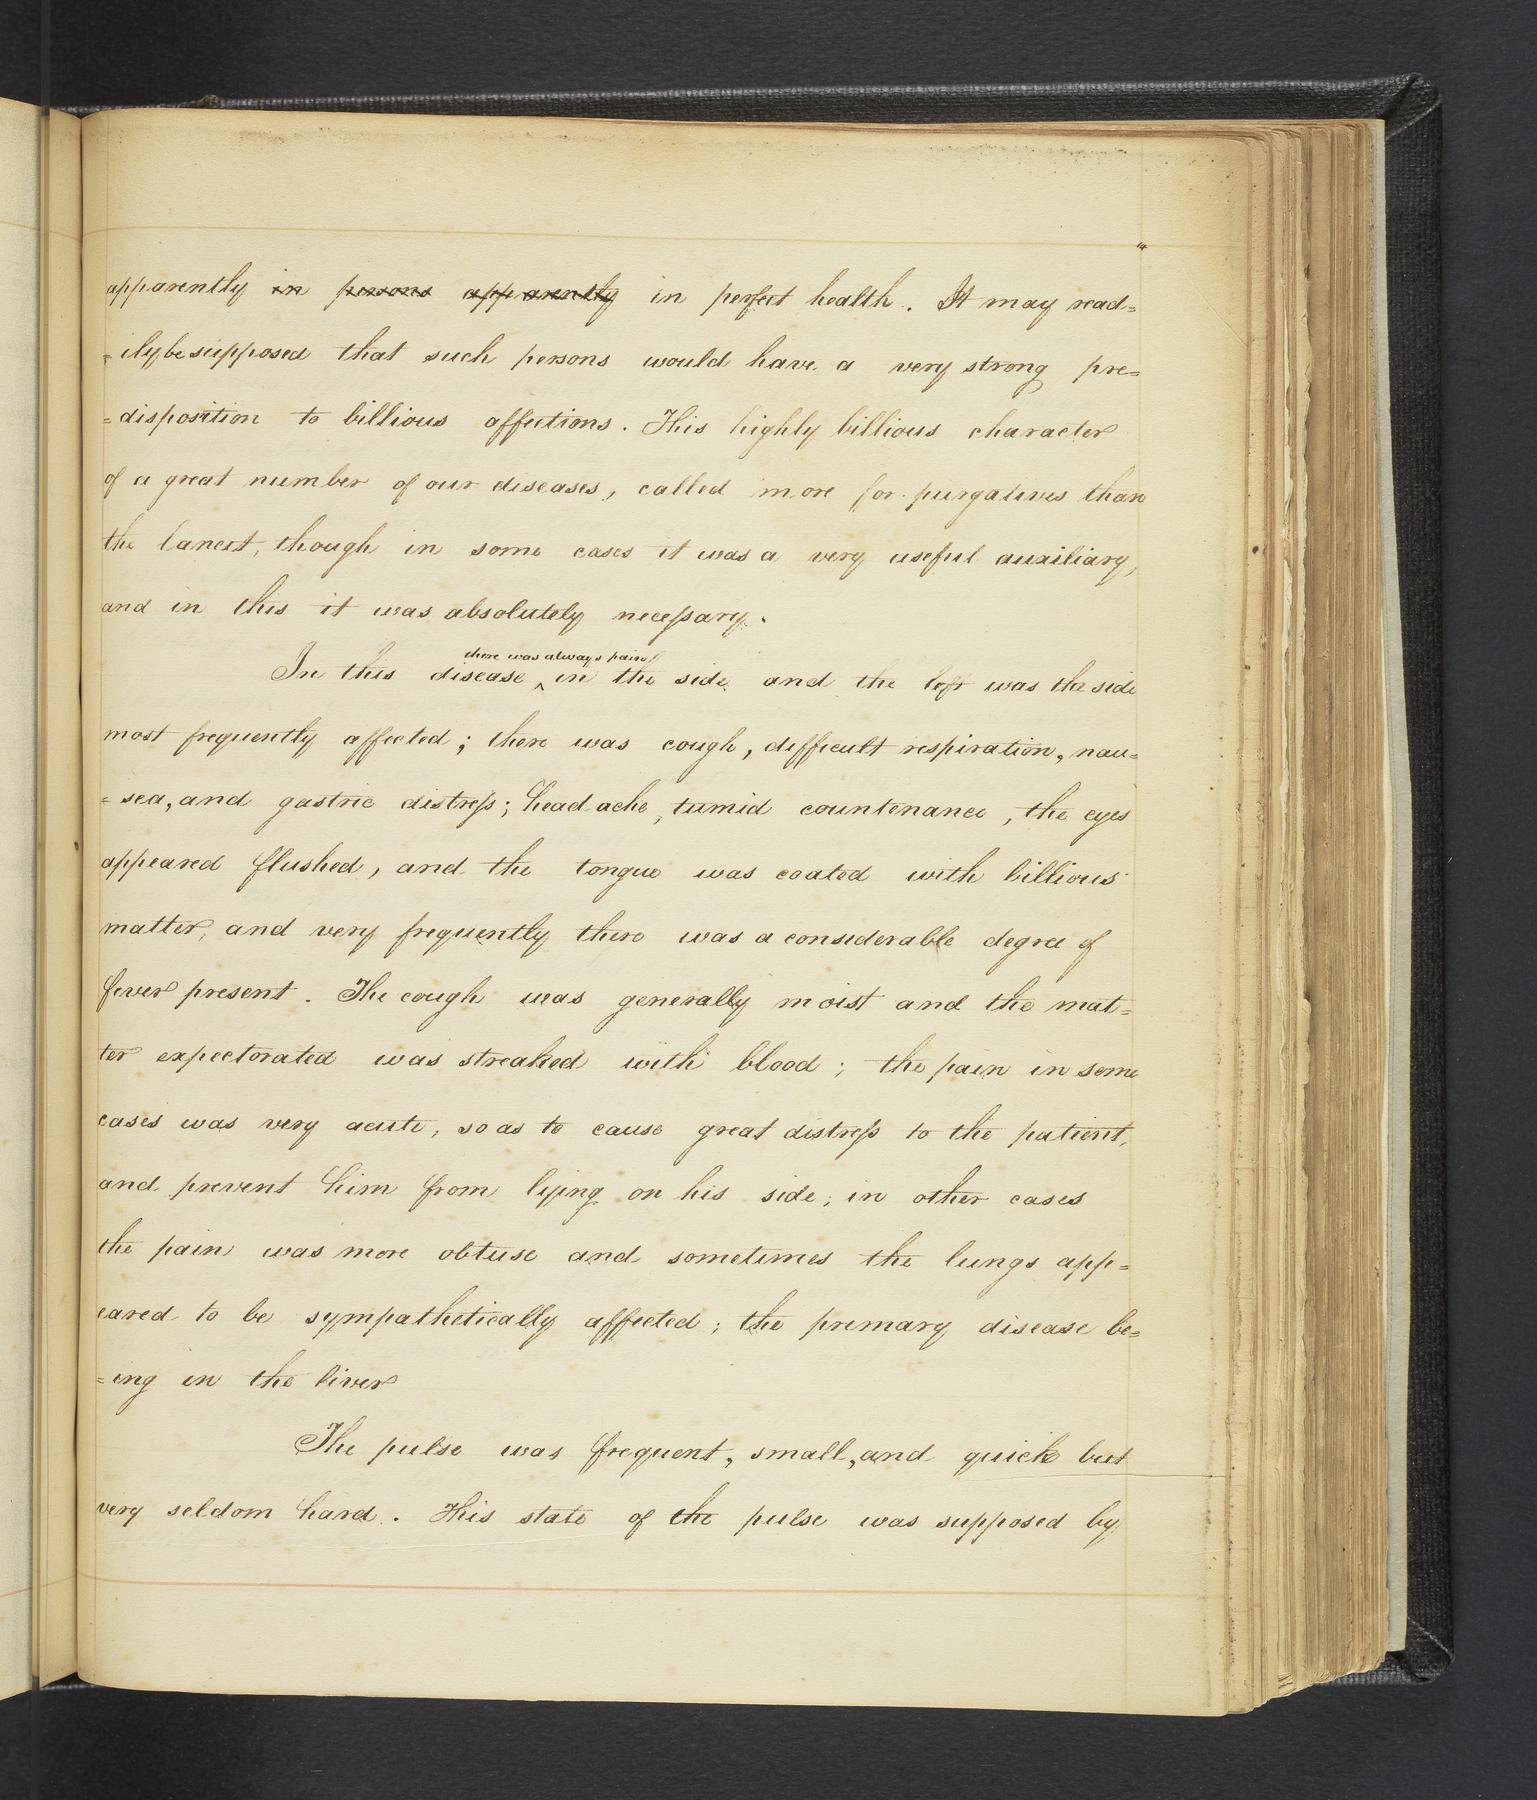 apparently in persons apparently in perfect health. It may read=
=ily be supposed that such persons would have a very strong pre=
=disposition to billious affections. This highly billious character
of a great number of our diseases, called more for purgatives than
the lancet, though in some cases it was a very useful auxiliary,
and in this it was absolutely necessary.
there was always pain
In this disease ‸ in the side and the left was the side
most frequently affected; there was cough, difficult respiration, nau=
=sea, and gastric distress; head ache, tumid countenance, the eyes
appeared flushed, and the tongue was coated with billious
matter, and very frequently there was a considerable degree of
fever present. The cough was generally moist and the mat=
ter expectorated was streaked with blood; the pain in some
cases was very acute, so as to cause great distress to the patient,
and prevent him from lying on his side; in other cases
the pain was more obtuse and sometimes the lungs app=
eared to be sympathetically affected; the primary disease be=
=ing in the liver
The pulse was frequent, small, and quick but
very seldom hard. This state of the pulse was supposed by